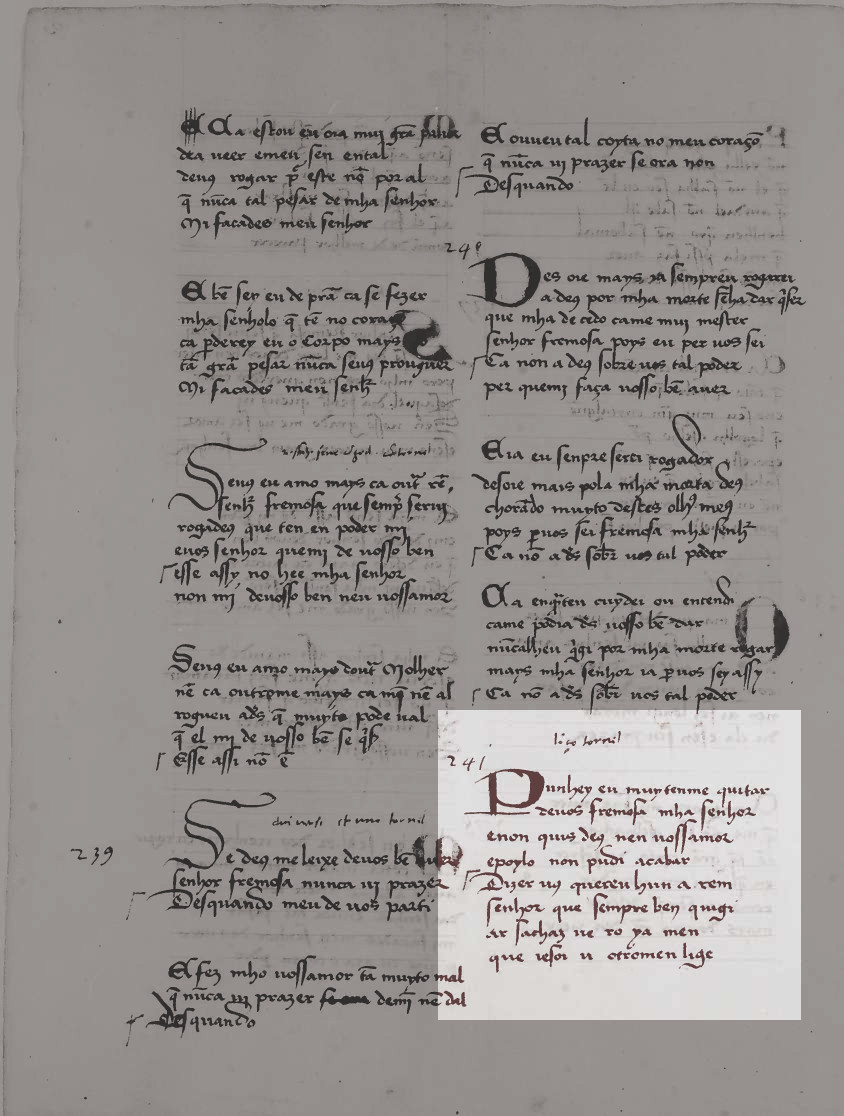 A Ca estou eu oia mui grã
dea ueer e meu sen ental
deuus rogar pᵉ este nõ por al
q̄ nũca tal pesar de mha senhor
Mi facades meu senhor
E bẽ sey eu de prã ca se fezer
mha senholo q̄ tẽ no coraçõ
ca ꝑderey eu o Corpo mays
tã grã pesar nũca seus prouguer
Mi facades meu senhʳ
Seuus eu amo mays ca outʳ rẽ
senhʳ fremosa que sempʳ serui
rogadeus que ten en poder mi
euos senhor quemi de uosso ben
esse assy no hee mha senhor
non mi deuosso ben neu uossamor
Seuus eu amo mays doutʳ Molher
nẽ ca outrome mays ca mĩ nẽ al
rogueu ads q̄ muyto pode ual
q̄ el mi de uosso bẽ se q̄sʳ
Esse assi nõ ẽ
239
Se deus me leixe deuos bẽ auer
senhor fremosa nunca ui prazer
Desquando meu de uos parti
E fez mho uossamor tã muyto mal
q̄ nũca ui prazer demĩ nẽ dal
Desquando
E ouueu tal coyta no meu coraçõ
q̄ nũca ui prazer se ora non
Desquando
240
Des oie mays ia sempreu rogarei
a deus por mha morte senha dar q̄ser
que mha de cedo came mui mester
senhor fremosa poys eu per uos sei
Ca non a deus sobre uos tal poder
per quemi faça uosso bẽ auer
E ia eu senpre serei rogador
desoie mais pola mha morta deus
chorãdo muyto destes olhos meus
poys ꝑuos sei fremosa mha senhʳ
Ca nõ a ds sobʳ uos tal poder
Ca enqʳteu cuydei ou entendi
came podia ds uosso bẽ dar
nũcalheu q̄gi por mha morte rogar
mays mha senhor ia ꝑuos sey assy
Ca nõ a ds sobʳ uos tal poder
241
Punhey eu muytenme quitar
deuos fremosa mha senhor
enon quis deus nen uossamor
epoylo non pudi acabar
Dizer uus quereu hun a rem
senhor que sempre ben quigi
ar sachaz ue ro ya men
que iesoi u otromen lige